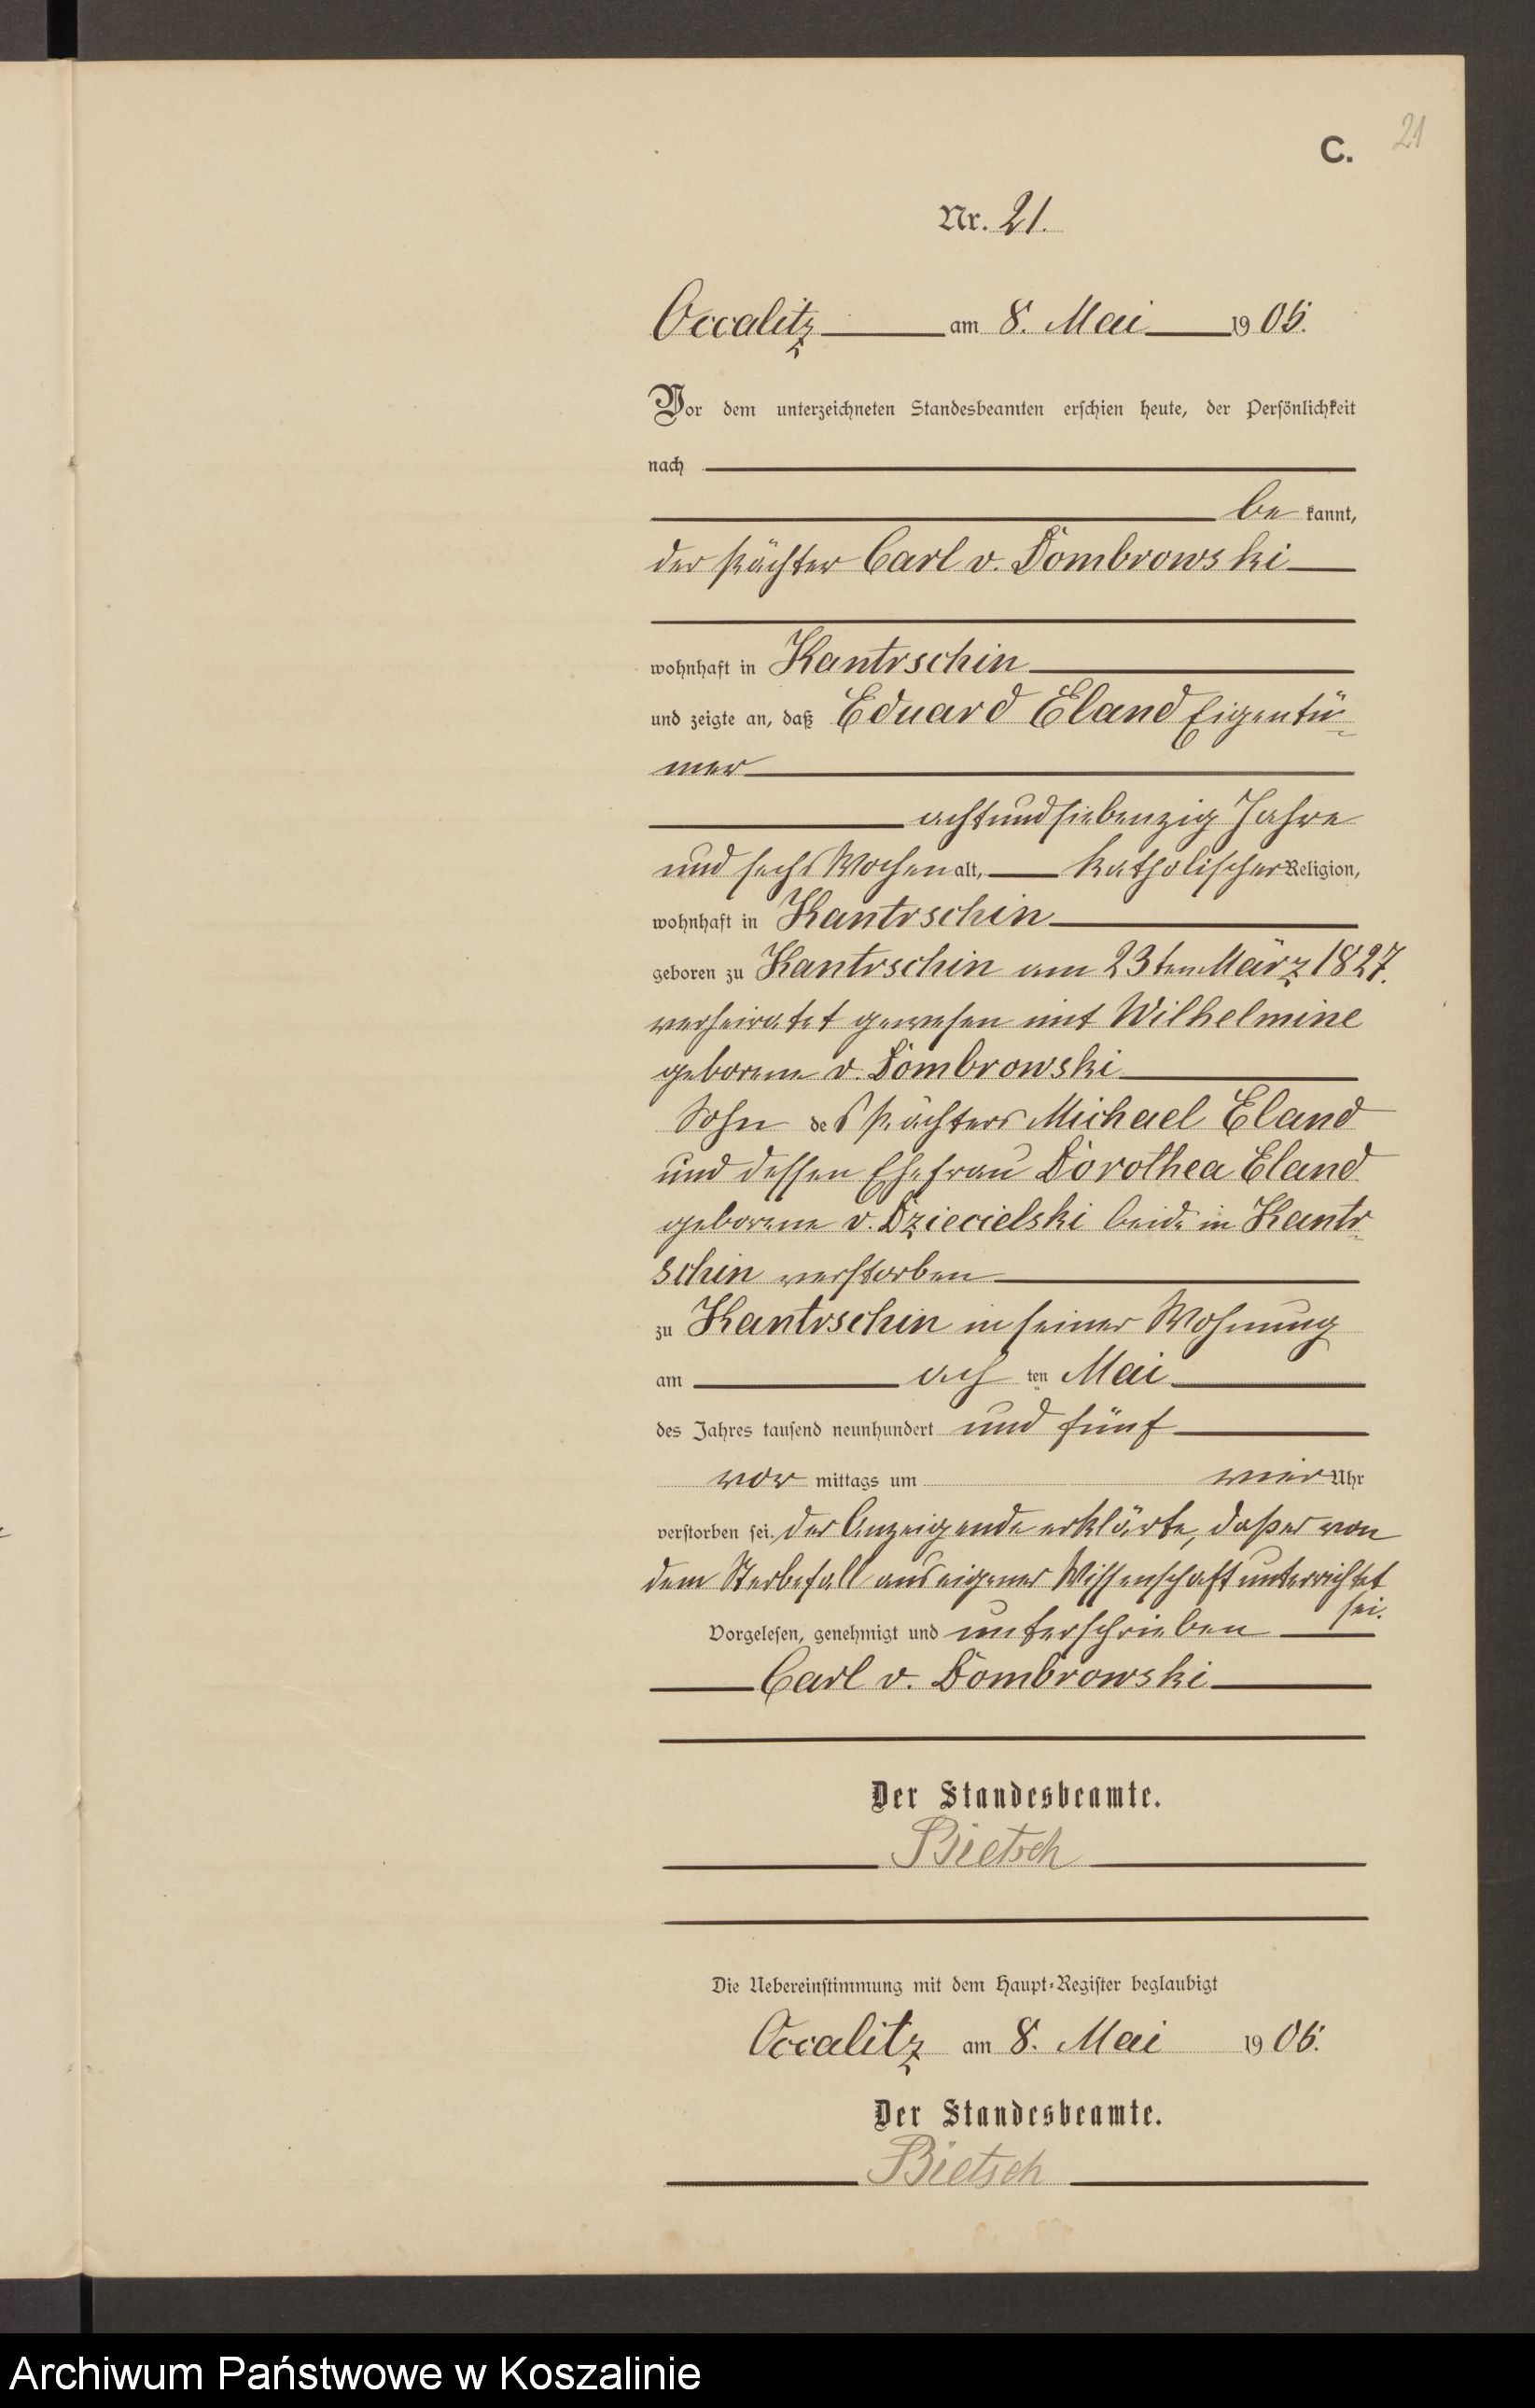 21
C.
Nr. 21.
Occalitz am 8. Mai 1905.
Vor dem unterzeichneten Standesbeamten erschien heute, der Persönlichkeit
nach
be kannt,
der Pächter Carl v. Dombrowski
wohnhaft in Kantrschin
und zeigte an, daß Eduard Eland Eigentü-
mer
achtundsiebenzig Jahre
und sechs Wochen alt, katholischer Religion,
wohnhaft in Kantrschin
geboren zu Kantrschin am 23ten März 1827.
verheiratet gewesen mit Wilhelmine
geborene v. Dombrowski
Sohn des Pächters Michael Eland
und dessen Ehefrau Dorothea Eland
geborene v. Dziecielski beide in Kantr-
schin verstorben
zu Kantrschin in seiner Wohnung
am ach ten Mai
des Jahres tausend neunhundert und fünf
vor mittags um vier Uhr
verstorben sei. der Anzeigende erklärte, daß er von
dem Sterbefall aus eigener Wissenschaft unterrichtet
sei.
Vorgelesen, genehmigt und unterschrieben
Carl v. Dombrowski
Der Standesbeamte.
Bietsch
Die Uebereinstimmung mit dem Haupt-Register beglaubigt
Occalitz am 8. Mai 1905.
Der Standesbeamte.
Bietsch
Archiwum Państwowe w Koszalinie